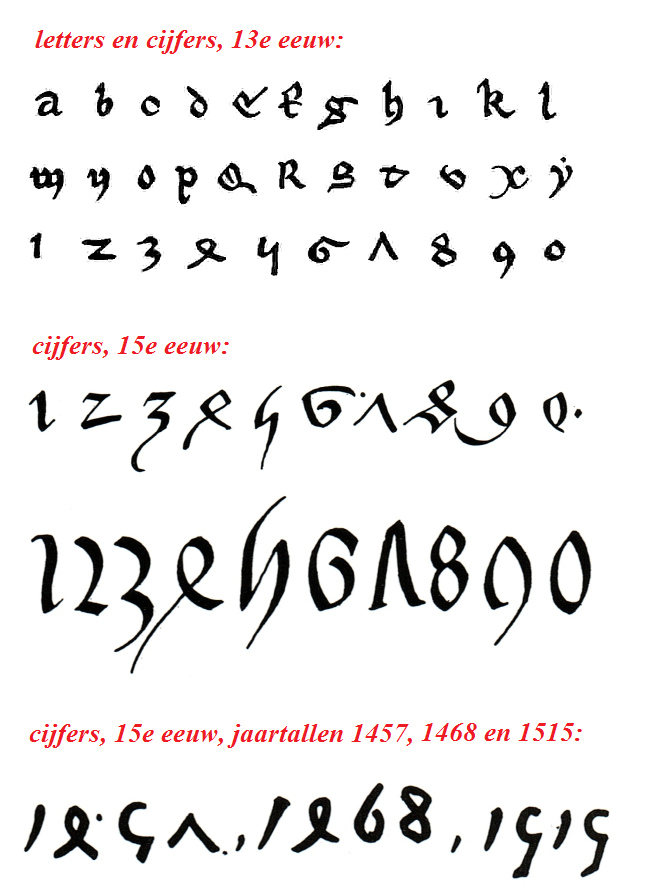 letters en cijfers, 13e eeuw:
a b c d e f g h i k l
m n o p Q R S t v x ẏ
1 2 3 4 5 6 7 8 9 0
cijfers, 15e eeuw:
1 2 3 4 5 6 7 8 9 0.
1 2 3 4 5 6 7 8 9 0
cijfers, 15e eeuw, jaartallen 1457, 1468 en 1515:
1457., 1468, 1515